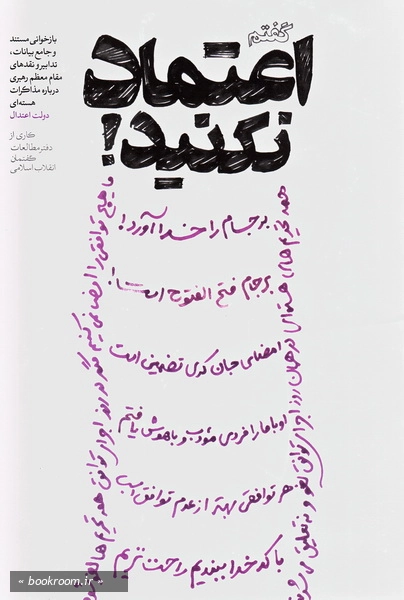 گفتم
اعتماد
نکنید!
بازخوانی مستند
و جامع بیانات،
تدابیر و نقدهای
مقام معظم رهبری
درباره مذاکرات
هسته‌ای
دولت اعتدال
کاری از
دفتر مطالعات
گفتمان
انقلاب اسلامی
برجام را خدا آورد!
برجام فتح الفتوح است!
امضای جان کری تضمین است
اوباما را فردی مؤدب و باهوش یافتم
هر توافقی بهتر از عدم توافق است
با کدخدا ببندیم راحت‌تریم
همه تحریم‌های هسته‌ای در همان روز اجرای توافق لغو و نه تعلیق می‌شود
ما هیچ توافقی را امضا نمی‌کنیم مگر در روز اجرای توافق همه تحریم‌ها لغو شود
« bookroom.ir »